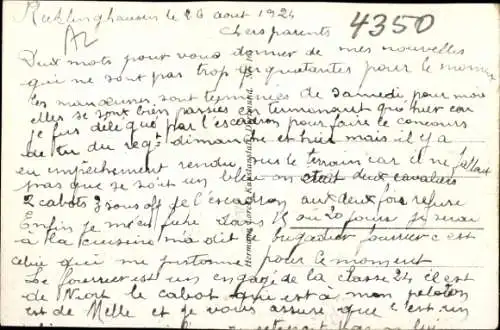 Recklinghausen le 26 aout 1924
4350
AL
Chers parents
Deux mots pour vous donner de mes nouvelles
qui ne sont pas trop inquietantes pour le moment
les manœuvres sont terminées de samedi pour moi
elles se sont bien passées en tournant que hier car
je fus délégué par l'escadron pour faire le concours
de tir du regt dimanche et hier mais il y a
eu empêchement rendu sur le terrain car il ne fallait
pas que se soit un bleu on était deux cavaliers
2 cabots 3 sous off je l'escadron aux deux fois refuse
Enfin je m'en fiche dans 15 ou 20 jours je serai
a la cuisine m'a dit le brigadier fourrier c'est
celui qui me pistonne pour le moment
Le fourrier est un engagé de la classe 24 il est
de Niort le cabot qui est a mon peloton
est de Melle et je vous assure que c'est un
Hermann Lorch, Kunstanstalt, Dortmund